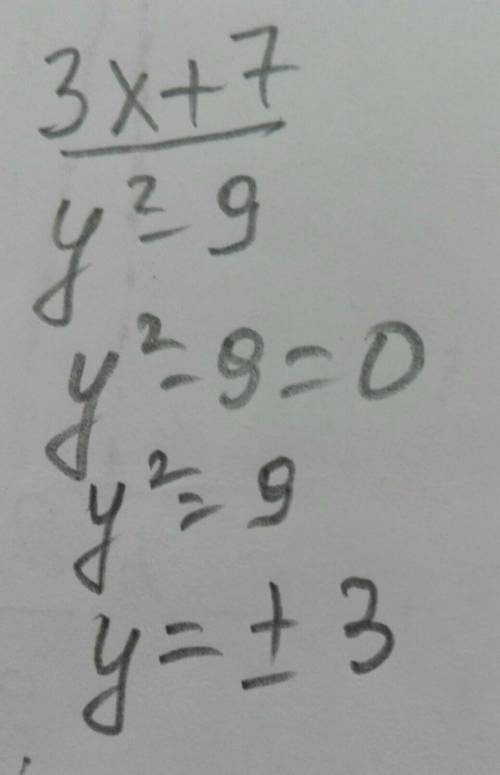 3x+7
y²-9
y²-9=0
y²=9
y=±3